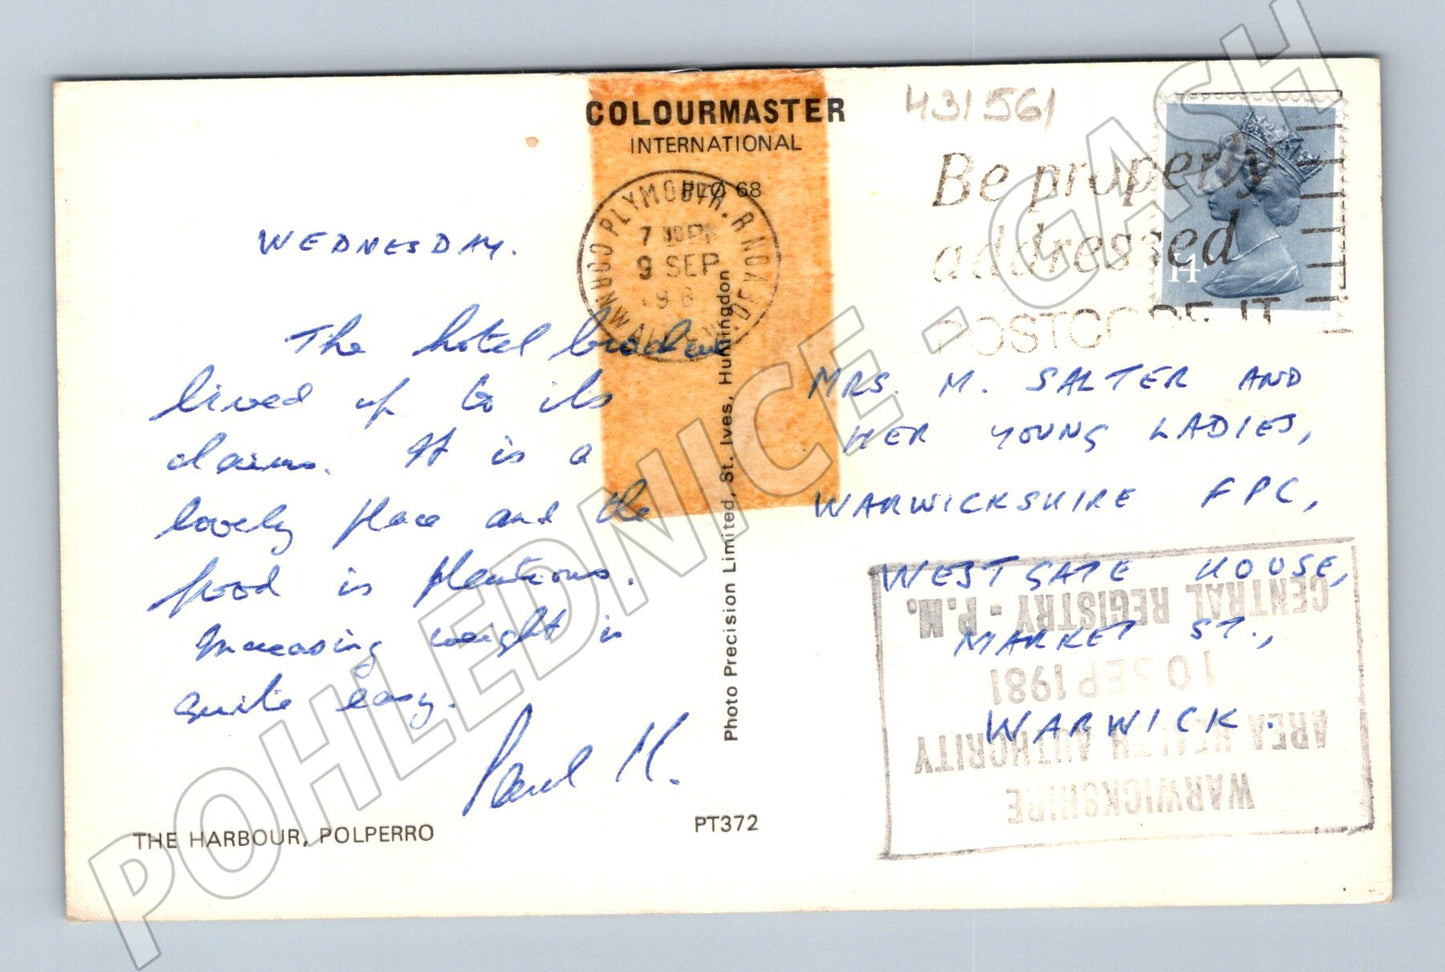 COLOURMASTER
INTERNATIONAL
PLO 68
431561
Be properly
addressed
POSTCODE IT
14
PLYMOUTH. R
CORNWALL
DEVON
9 SEP
198
WEDNESDAY.
The hotel brochure
lived up to its
claims. It is a
lovely place and the
food is plenteous.
Increasing weight is
quite easy.
Paul M.
MRS. M. SALTER AND
HER YOUNG LADIES,
WARWICKSHIRE FPC,
WESTGATE HOUSE,
MARKET ST.,
WARWICK.
WARWICKSHIRE
AREA HEALTH AUTHORITY
10 SEP 1981
CENTRAL REGISTRY - P.M.
Photo Precision Limited, St. Ives, Huntingdon
THE HARBOUR, POLPERRO
PT372
POHLEDNICE - GASH